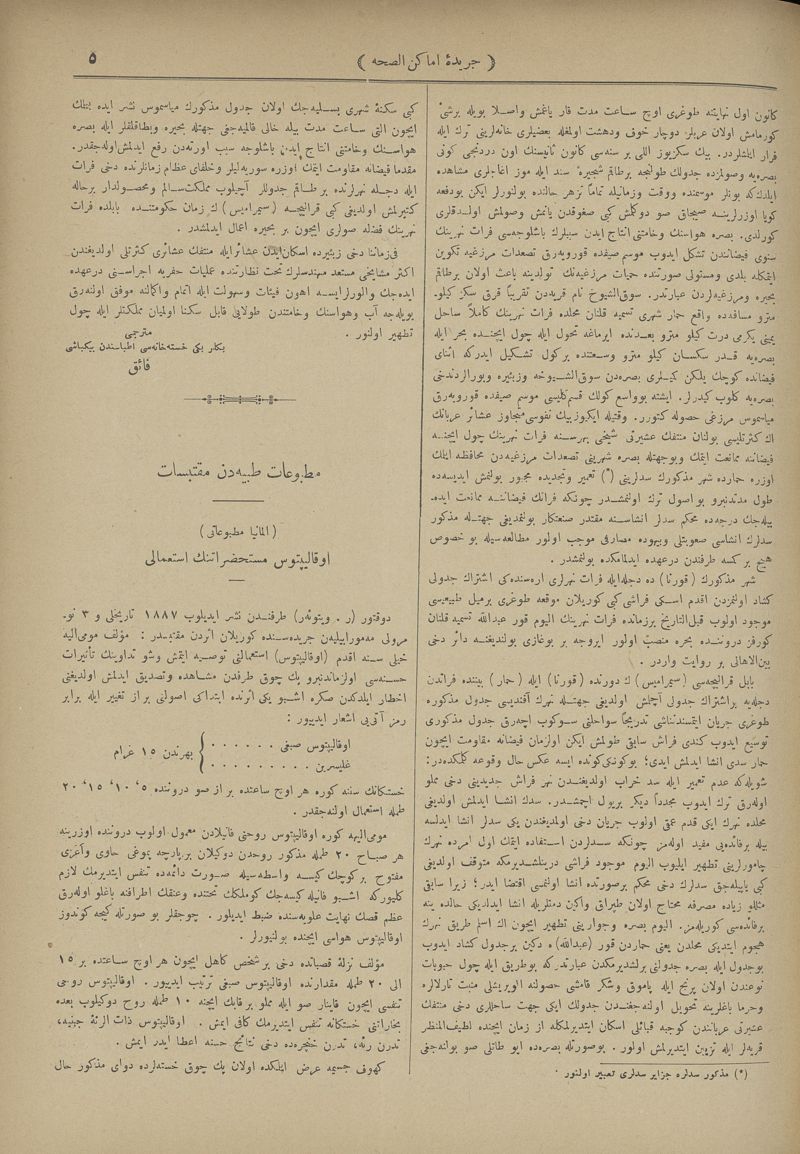 ﴿ جريدهٔ اماكن الصحه ﴾
٥
كانون اول نهايتنه طوغرى اوچ ساعت مدت قار ياغمش واصلا بويله برشئ
كورمامش اولان عربلر دوچار خوف ودهشت اولمغله بعضيلرى خانه‌لرينى ترك ايله
فرار ايلشلردر. بيك سكزيوز اللى بر سنه‌سى كانون ثانيسنك اون دردنجى كونى
بصره‌يه وصولمزده جدولك طولنجه برطاقم شجيره سند ايله موز اغاجلرى مشاهده
ايلدككه بونلر موسمنده ووقت وزمانيله تماماً تزهر حالنده بولنورلر ايكن بودفعه
كويا اوزرلرينه صيجاق صو دوكلمش كبى صغوقدن يانمش وصولمش اولدقلرى
كورلدى. بصره هواسنك وخامتنى انتاج ايدن سببلرك باشلوجه‌سى فرات نهرينك
سنوى فيضانندن تشكل ايدوب موسم صيفده قورويه‌رق تصعدات مرزغيه تكوين
ايتمكله بلدى ومستولى صورتنده حميات مرزغيه‌نك تولدينه باعث اولان برطاقم
بحيره ومرزغيه‌لردن عبارتدر. سوق‌الشيوخ نام قريه‌دن تقريباً قرق سكز كيلو.
مترو مسافه‌ده واقع حمار شهرى تسميه قلنان محلده فرات نهرينك كاملاً ساحل
يمنى يكرمى درت كيلو مترو بعدنده ايرماغه تحول ايله چول ايچنده بحر ايله
بصره‌يه قدر سكسان كيلو مترو وسعتنده بركول تشكيل ايدركه اثناى
فيضانده كوچك يلكن كميلرى بصره‌دن سوق‌الشيوخه وزبيره وبورالردندخى
بصره‌يه كلوب كيدرلر. ايشته بوواسع كولك قسم كليسى موسم صيفده قورويه‌رق
مياسموس مرزغى حصوله كتورر. وقتيله ايكيوزبيك نفوسى متجاوز عشائر عربانك
اك كثرتليسى بولنان منتفك عشيرتى شيخى بهرسنه فرات نهرينك چول ايچنه
فيضاننه ممانعت ايتمك وبوجهتله بصره شهرينى تصعدات مرزغيه‌دن محافظه ايتمك
اوزره حمارده شهر مذكورك سدلرينى (*) تعمير وتجديده مجبور بولنمش ايديسه‌ده
طول مدتدنبرو بو اصول ترك اولنمشدر چونكه فراتك فيضاننه ممانعت ايده.
بيله‌جك درجه‌ده محكم سدلر انشاسنه مقتدر صنعتكار بولنمديغى جهتله مذكور
سدلرك انشاسى صعوبتلى وبيهوده مصارفى موجب اولور مطالعه‌سيله بو خصوص
هيچ بركسه طرفندن درعهده ايدلمامكده بولنمشدر.
شهر مذكورك (قورنا) ده دجله‌ايله فرات نهرلرى اره‌سنده‌كى اشتراك جدولى
كشاد اولنمزدن اقدم اسكى فراشى كبى كوريلان موقعه طوغرى برميل طبيعيسى
موجود اولوب قبل‌التاريخ برزمانده فرات نهرينك اليوم قور عبدالله تسميه قلنان
كورفز دروننده بحره منصب اولور ايروجه بر بوغازى بولنديغنه دائر دخى
بين‌الاهالى بر روايت واردر.
بابل قراليچه‌سى (سميراميس) ك دورنده (قورنا) ايله (حمار) بيننده فراتدن
دجله‌يه براشتراك جدولى آچلمش اولديغى جهتله نهرك آقنديسى جدول مذكوره
طوغرى جريان ايتمسندن‌ناشى تدريجاً سواحلنى سوكوب آچه‌رق جدول مذكورى
توسيع ايدوب كندى فراش سابق طولمش ايكن اولزمان فيضانه مقاومت ايچون
حمار سدى انشا ايدلمش ايدى؛ بوكونكى‌كونده ايسه عكس حال وقوعه كلمكده‌در:
شويله‌كه عدم تعمير ايله سد خراب اولديغندن نهر فراش جديدينى دخى مملو
اوله‌رق ترك ايدوب مجدداً ديكر بريول آچمشدر. سدك انشا ايدلمش اولديغى
محلده نهرك ايكى قدم عمق اولوب جريان دخى اولمديغندن يكى سدلر انشا ايدلسه
بيله برفائده‌يى مفيد اوله‌مز چونكه سدلردن استفاده ايتمك اول امرده نهرك
چامورلرينى تطهير ايليوب اليوم موجود فراشى درينلشديرمكه متوقف اولديغى
كبى ياپيله‌جق سدلرك دخى محكم برصورتده انشا اولنمسى اقتضا ايدر؛ زيرا سابق
مثللو زياده مصرفه محتاج اولان طپراق واكين دمتلريله انشا ايدلديكى حالده ينه
برفائده‌سى كوريله‌مز. اليوم بصره وجوارينى تطهير ايچون اك اسلم طريق نهرك
هجوم ايتديكى محلدن يعنى حماردن قور (عبدالله) ه دكين برجدول كشاد ايدوب
بوجدول ايله بصره جدولنى برلشديرمكدن عبارتدركه بوطريق ايله چول حبوبات
نوعندن اولان پرنج ايله پاموق وشكر قامشى حصولنه الويريشلى منبت تارلالره
وخرما باغلرينه تحويل اولنه‌جغندن جدولك ايكى جهت ساحللرى دخى منتفك
عشيرتى عرباننك كوچبه قبائلى اسكان ايتديرلمكله از زمان ايچنده لطيف‌المنظر
قريه‌لر ايله تزيين ايتديرلمش اولور. بوصورتله بصره‌ده ايو طاتلى صو بولنه‌جغى
(*) مذكور سدلره جزاير سدلرى تعبير اولنور .
كبى سكنهٔ شهرى بسليه‌جك اولان جدول مذكورك مياسموس نشر ايده بيلمك
ايچون التى ساعت مدت بيله خالى قالميه‌جغى جهتله بحيره وبطاقلقلر ايله بصره
هواسنك وخامتنى انتاج ايدن باشلوجه سبب اورته‌دن رفع ايدلمش‌اوله‌جقدر.
مقدما فيضانه مقاومت ايتمك اوزره سوريه‌ليلر وخلفاى عظام زمانلرنده دخى فرات
ايله دجله نهرلرنده برطاقم جدوللر آچيلوب مملكت‌سالم ومحصولدار برحاله
كتيرلمش اولديغى كبى قراليچه (سميراميس) ك زمان حكومتنده بابلده فرات
نهرينك فضله صولرى ايچون بر بحيره اعمال ايدلمشدر .
فى‌زماننا دخى زبيره‌ده اسكان‌ايلان عشائرايله منتفك عشائرى كثرتلى اولديغندن
اكثر مشايخى مستعد مهندسلرك تحت نظارتنده عمليات حفريه اجراسنى درعهده
ايده‌جك والورلرايسه اهون فيئات وسهولت ايله اتمام واكمالنه موفق اولنه‌رق
بويله‌جه آب وهواسنك وخامتندن طولايى قابل سكنا اولميان مملكتلر ايله چول
تطهير اولنور .
مترجمى
بكلر بكى خسته‌خانه‌سى اطباسندن بيكباشى
فائق
مطبوعات طبيه‌دن مقتبسات
(المانيا مطبوعاتى)
اوقاليپتوس مستحضراتنك استعمالى
دوقتور (ر . ويتوئه‌ر) طرفندن نشر ايديلوب ١٨٨٧ تاريخلى و ٣ نو.
مرولى مه‌مورابيله‌ين جريده‌سنده كوريلان اثردن مقتبسدر : مؤلف مومى‌اليه
خيلى سنه اقدم (اوقاليپتوس) استعمالنى توصيه ايتمش وشو تداوينك تأثيرات
حسنه‌سى اولزماندنبرو پك چوق طرفدن مشاهده وتصديق ايدلمش اولديغنى
اخطار ايلدكدن صكره اشبو يكى اثرنده ابتداكى اصولنى براز تغيير ايله برابر
رمز آتى‌يى اشعار ايدييور :
اوقاليپتوس صبغى . . . . . . } بهرندن ١٥ غرام
غليسرين . . . . . . . . .
خستكانك سننه كوره هر اوچ ساعتده بر از صو دروننده ٥، ١٠، ١٥، ٢٠
طمله استعمال اولنه‌جقدر .
مومى‌اليهه كوره اوقاليپتوس روحنى فانيلادن معمول اولوب دروننده اوزرينه
هر صباح ٢٠ طمله مذكور روحدن دوكيلان برپارچه پموغى حاوى وآغزى
مفتوح بركوچك كيسه واسطه‌سيله صورت دائمه‌ده تنفس ايتديرمك لازم
كليوركه اشبو فانيله كيسه‌جك كوملكك تحتنده وعنقك اطرافنه باغلو اوله‌رق
عظم قصك نهايت علويه‌سنده ضبط ايديلور . چوجقلر بو صورتله كيجه كوندوز
اوقاليپتوس هواسى ايچنده بولنيورلر .
مؤلف نزلهٔ قصباتده دخى برشخص كاهل ايچون هر اوچ ساعتده بر ١٥
الى ٢٠ طمله مقدارنده اوقاليپتوس صبغى ترتيب ايدييور . اوقاليپتوس روحى
تنفسى ايچون قاينار صو ايله مملو برقابك ايچنه ١٠ طمله روح دوكيلوب بعده
بخاراتنى خستكانه تنفس ايتديرمك كافى ايمش . اوقاليپتوس ذات الرئهٔ جبنيه،
تدرن رئه، تدرن حنجره‌ده دخى نتائج حسنه اعطا ايدر ايمش .
كهوف جسيمه عرض ايلمكده اولان پك چوق خسته‌لرده دواى مذكور حال